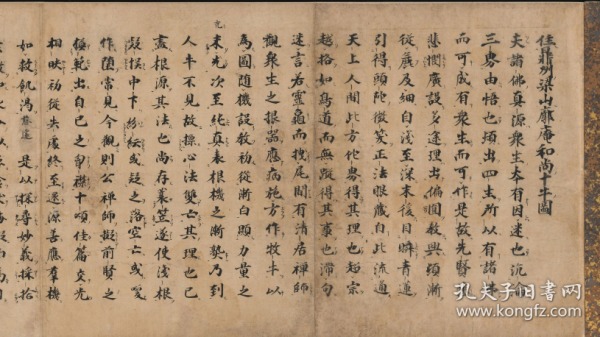 住鼎州梁山廓庵和尚十牛圖
夫諸佛真源衆生本有因迷也沉淪
三界由悟也頓出四生所以有諸佛
而可成有衆生而可作是故先賢
悲憫廣設多途理出偏圓教興頓漸
從麁及細自淺至深末後目瞬青蓮
引得頭陀微笑正法眼藏自此流通
天上人間此方他界得其理也超宗
越格如鳥道而無蹤得其事也滯句
迷言若靈龜而曳尾間有清居禪師
觀衆生之根器應病施方作牧牛以
為圖隨機設教初從漸白顯力量之
充
未充次至純真表根機之漸熟乃到
人牛不見故標心法雙亡其理也已
盡根源其法也尚存莎笠遂使淺根
疑悞中下紛紜或疑之落空亡或喚
作墮常見今觀則公禪師擬前賢之
模範出自己之胸襟十頌佳篇交光
相映初從失處終至還源善應群機
如救飢渴慈遠是以探尋妙義採拾
孔夫子旧书网